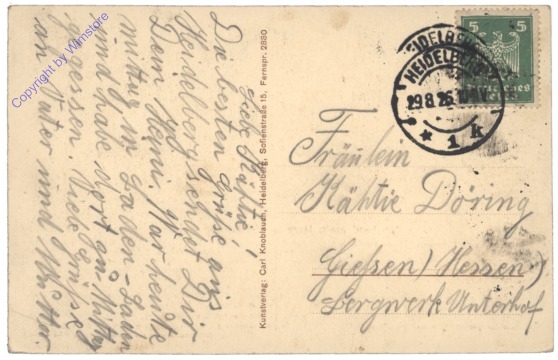 Liebe Käthie!
Die besten Grüße aus
Heidelberg sendet Dir
Dein Heini. War heute
mittag in Baden-Baden
und habe dort an Mittag
gegessen Viele Grüße
an Vater und Mutter.
Kunstverlag: Carl Knoblauch, Heidelberg, Sofienstraße 15, Fernspr. 2880
HEIDELBERG
HEIDELBERG
29.8.26
* 1 k
5 5
Deutsches
Fräulein
Käthie Döring
Giessen (Hessen)
Bergwerk Unterhof
Copyright by Winstore